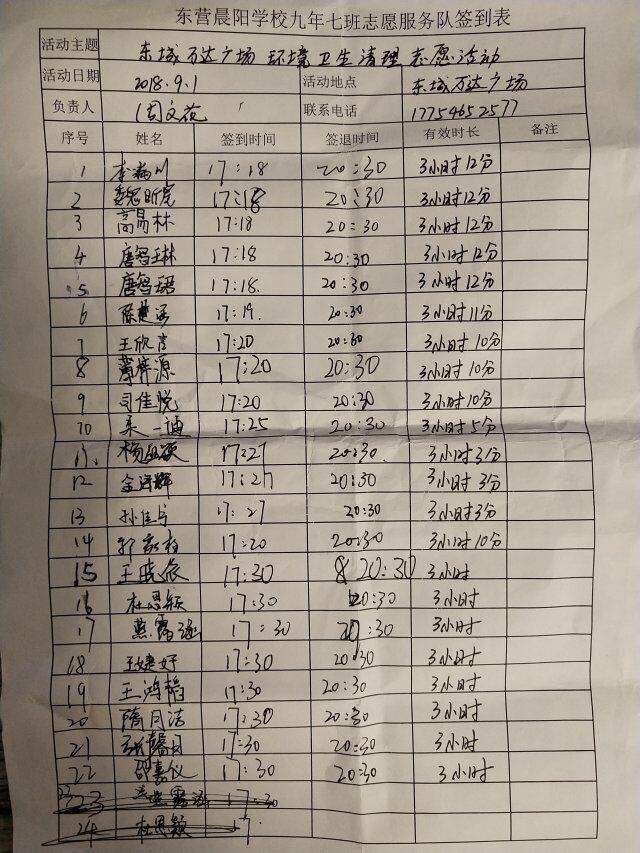 东营晨阳学校九年七班志愿服务队签到表
活动主题 东城万达广场 环境卫生清理志愿活动
活动日期 2018.9.1 活动地点 东城万达广场
负责人 周文花 联系电话 17754652577
序号 姓名 签到时间 签退时间 有效时长 备注
1 17:18 20:30 3小时12分
2 魏昕 17:18 20:30 3小时12分
3 高易林 17:18 20:30 3小时12分
4 唐智琳 17:18 20:30 3小时12分
5 唐智珺 17:18. 20:30 3小时12分
6 陈楚涵 17:19. 20:30 3小时11分
7 王欣言 17:20 20:30 3小时10分
8 源 17:20 20:30 3小时10分
9 司佳悦 17:20 20:30 3小时10分
10 吴一迪 17:25 20:30 3小时5分
11. 杨 17:27 20:30. 3小时3分
12 17:27 20:30 3小时3分
13 孙佳 17:27 20:30 3小时3分
14 郭 17:20 20:30 3小时10分
15 王晓辰 17:30 8 20:30 3小时
16 杜思颖 17:30 20:30 3小时
17 燕露涵 17:30 20:30 3小时
18 王婕妤 17:30 20:30 3小时
19 王鸿韬 17:30 20:30 3小时
20 隋月洁 17:30 20:30 3小时
21 张馨月 17:30 20:30 3小时
22 邵嘉仪 17:30 20:30 3小时
23 17:30
24 杜思颖 17